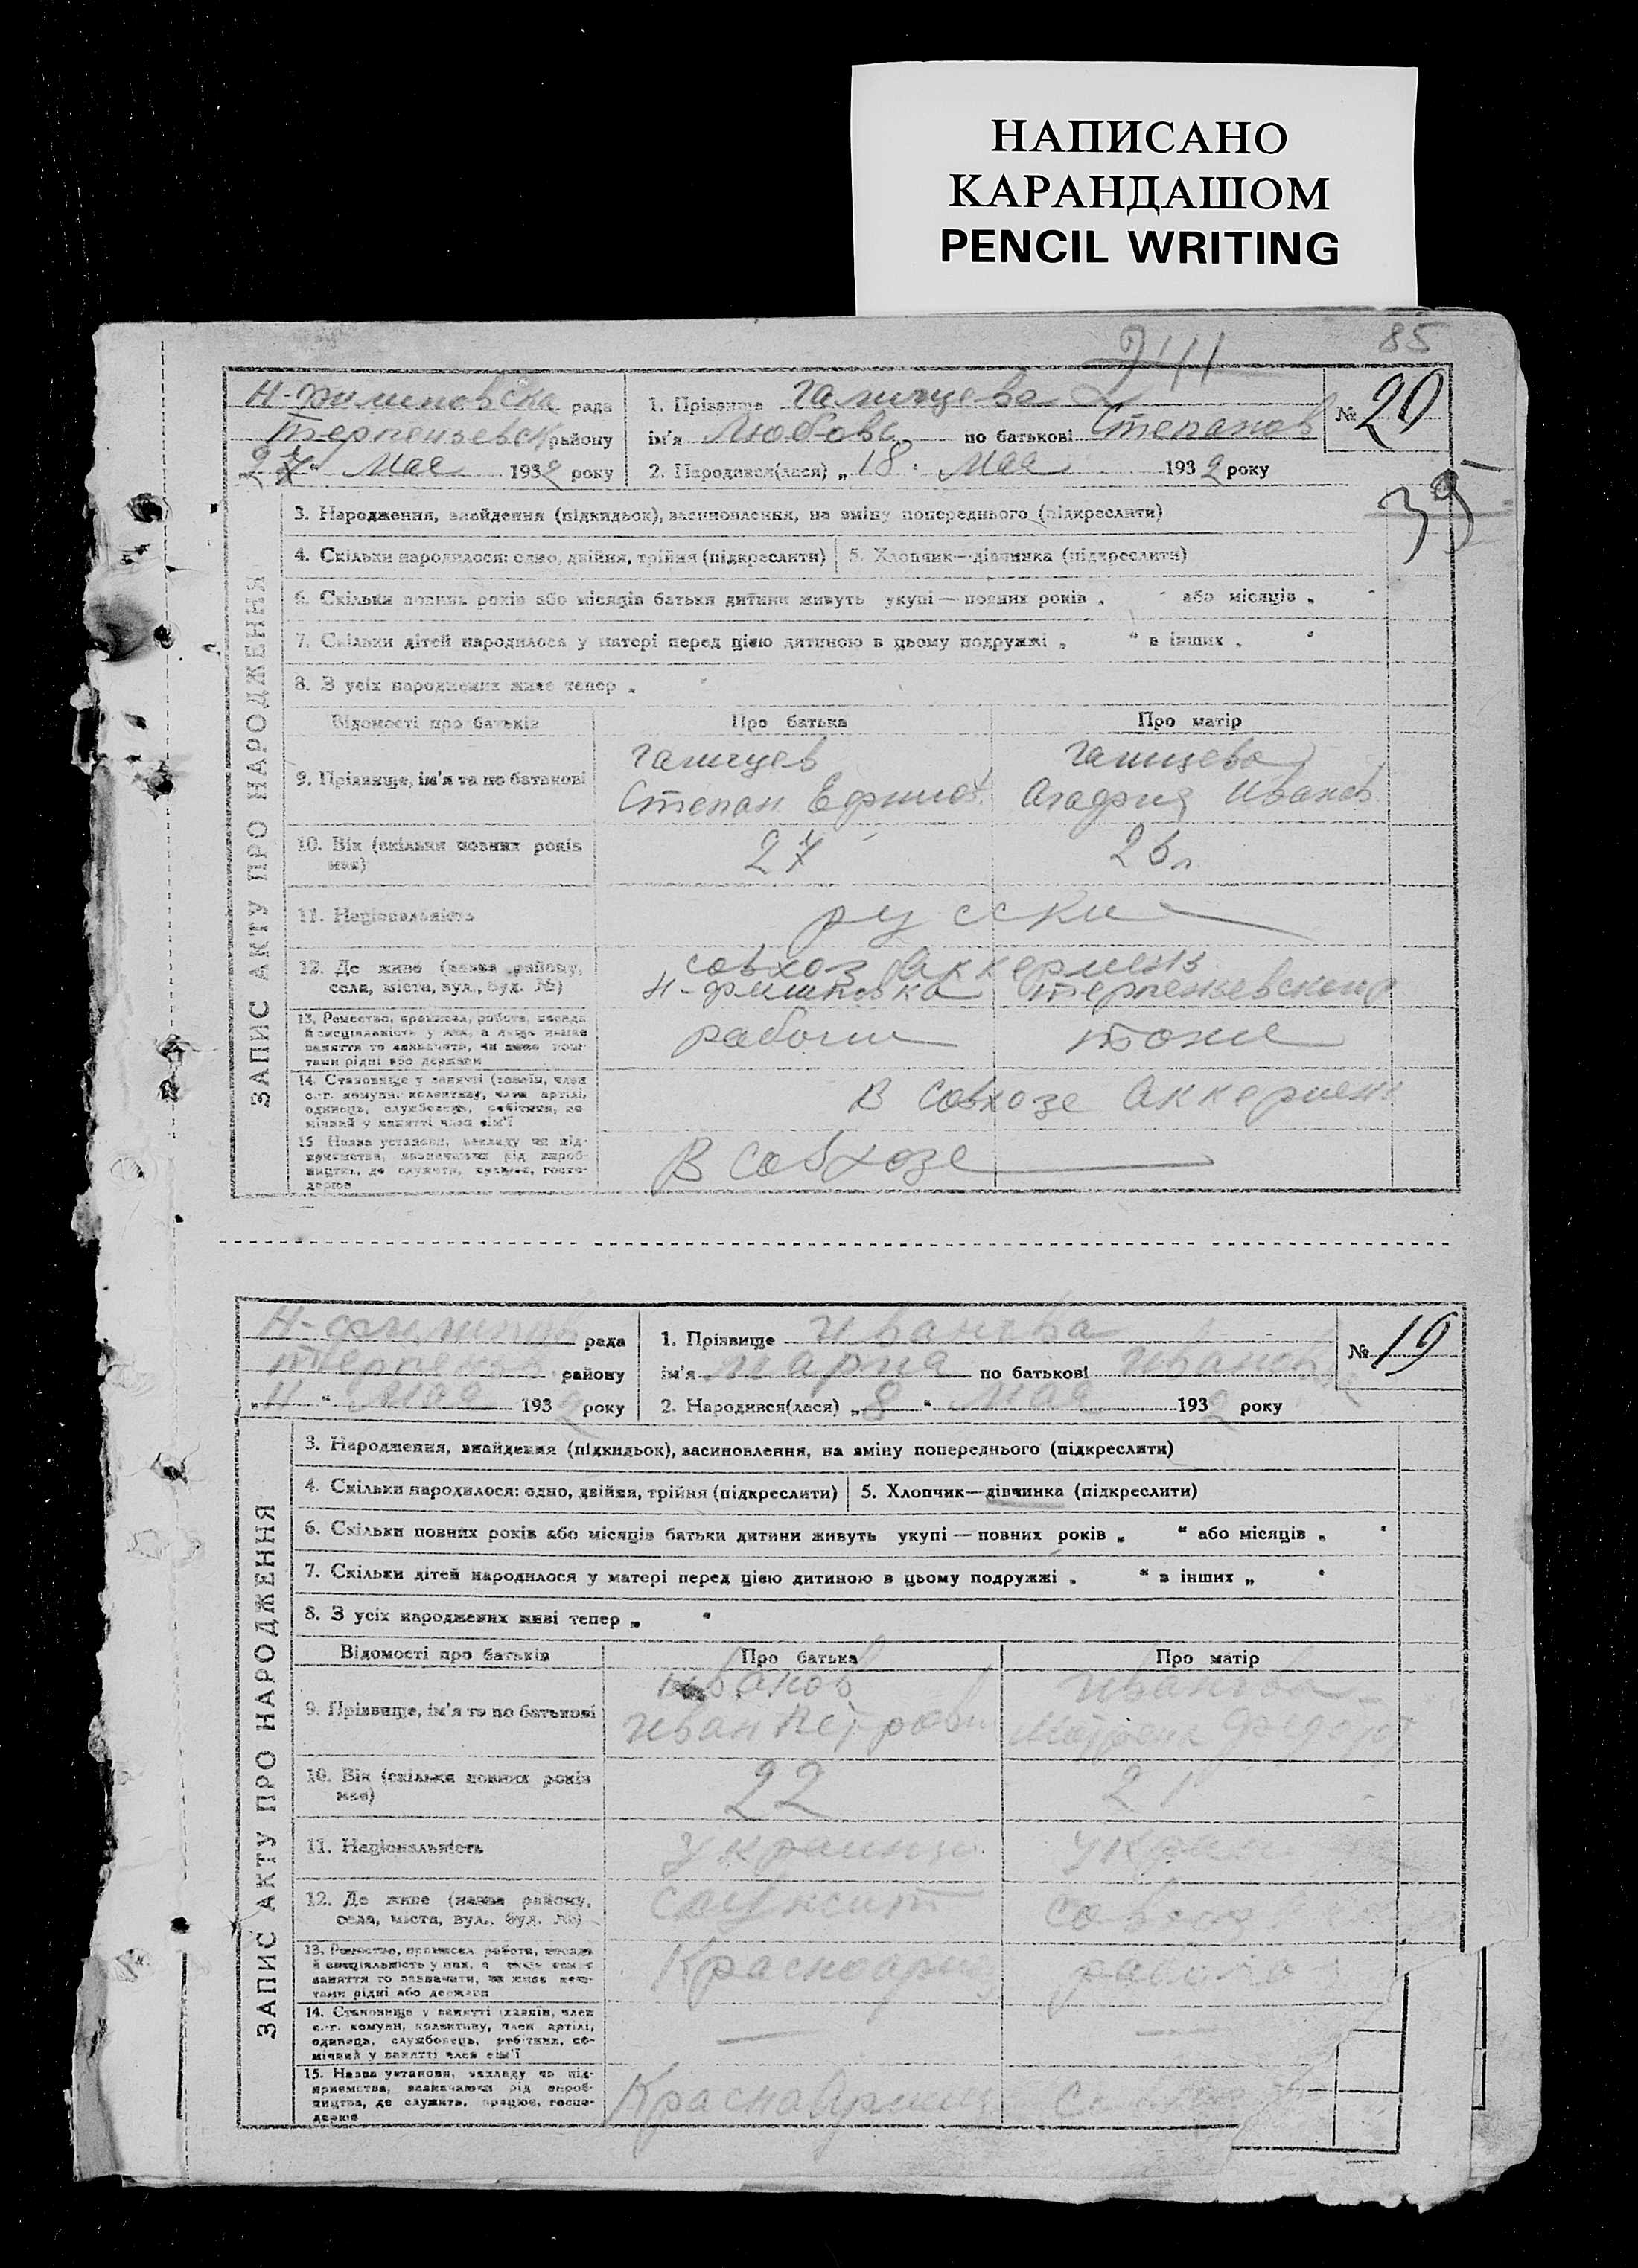 НАПИСАНО
КАРАНДАШОМ
PENCIL WRITING
85
ЗАПИС АКТУ ПРО НАРОДЖЕННЯ
рада
району
Мая 1932 року
1. Прізвище
ім'я Любовь по батькові Степанов
2. Народився(лася) „18" Мая 1932 року
№ 20
39
3. Народження, знайдення (підкидьок), засиновлення, на зміну попереднього (підкреслити)
4. Скільки народилося: одно, двійня, трійня (підкреслити) 5. Хлопчик—дівчинка (підкреслити)
6. Скільки повних років або місяців батьки дитини живуть укупі — повних років „ " або місяців „ "
7. Скільки дітей народилося у матері перед цією дитиною в цьому подружжі „ " в інших „ "
8. З усіх народжених живі тепер „ "
Відомості про батьків Про батька Про матір
9. Прізвище, ім'я та по батькові
Степан Ефимов Агафия Иванов
10. Вік (скільки повних років має)
27 26 л
11. Національність
русски
12. Де живе (назва району, села, міста, вул., буд. №)
совхоз Аккермень
Н-филиповка Терпеньевского р
13. Ремество, промисел, робота, посада й спеціяльність у них, а якщо немає заняття то зазначити, чи живе коштами рідні або держави
рабочи тоже
14. Становище у занятті (хазяїн, член с.-г. комуни, колективу, член артілі, одинець, службовець, робітник, помічний у занятті член сім'ї
В Совхозе Аккермень
15. Назва установи, закладу чи підприємства, зазначаючи рід виробництва, де служить, працює, господарює
В Совхозе
ЗАПИС АКТУ ПРО НАРОДЖЕННЯ
рада
району
„11" Мая 1932 року
1. Прізвище Иванова
ім'я Мария по батькові Иванов
2. Народився(лася) „8" Мая 1932 року
№ 19
3. Народження, знайдення (підкидьок), засиновлення, на зміну попереднього (підкреслити)
4. Скільки народилося: одно, двійня, трійня (підкреслити) 5. Хлопчик—дівчинка (підкреслити)
6. Скільки повних років або місяців батьки дитини живуть укупі — повних років „ " або місяців „ "
7. Скільки дітей народилося у матері перед цією дитиною в цьому подружжі „ " в інших „ "
8. З усіх народжених живі тепер „ "
Відомості про батьків Про батька Про матір
9. Прізвище, ім'я та по батькові
Иванов Иванова
Иван Петрови Матрена Федор
10. Вік (скільки повних років має)
22 21
11. Національність
12. Де живе (назва району, села, міста, вул., буд. №)
служит совхоз
13. Ремество, промисел, робота, посада й спеціяльність у них, а якщо немає заняття то зазначити, чи живе коштами рідні або держави
14. Становище у занятті (хазяїн, член с.-г. комуни, колективу, член артілі, одинець, службовець, робітник, помічний у занятті член сім'ї
15. Назва установи, закладу чи підприємства, зазначаючи рід виробництва, де служить, працює, господарює